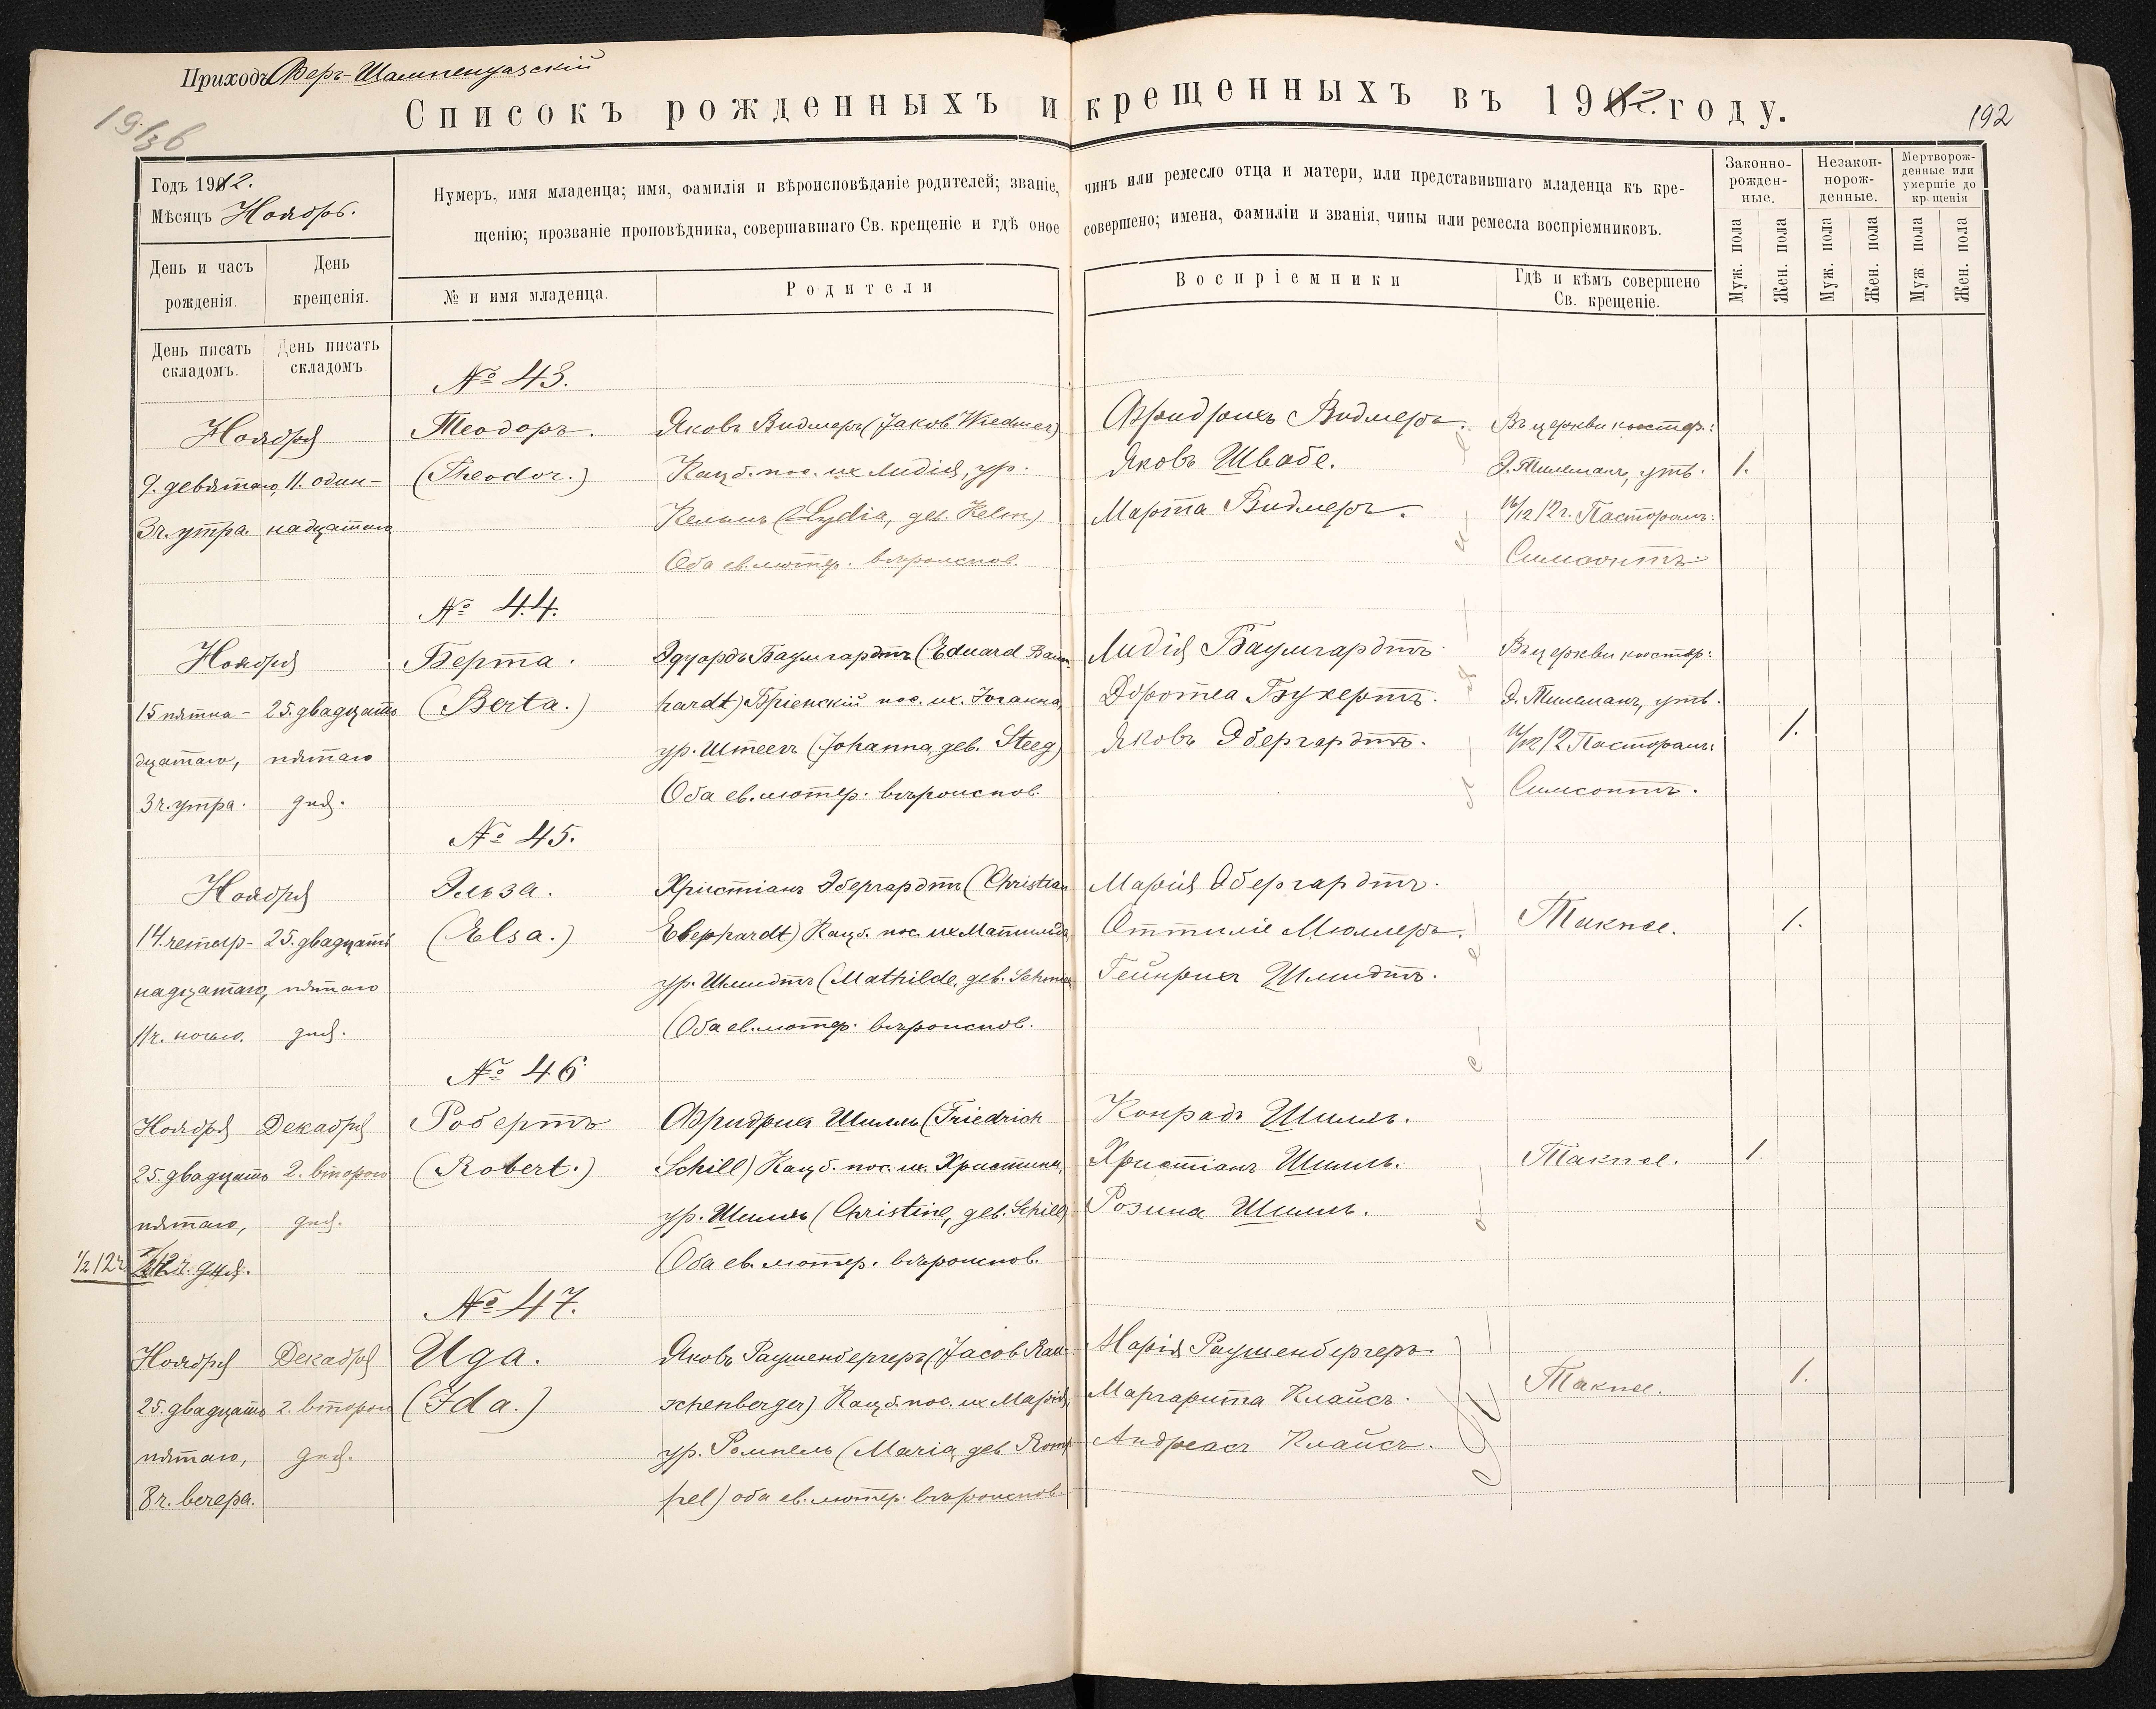 Приходъ Феръ-Шампенуазскій
Списокъ рожденныхъ и крещенныхъ въ 1912. году.
192
Годъ 1912.
Мѣсяцъ Ноябрь.
Нумеръ, имя младенца; имя, фамилія и вѣроисповѣданіе родителей; званіе, чинъ или ремесло отца и матери, или представившаго младенца къ кре-
щенію; прозваніе проповѣдника, совершавшаго Св. крещеніе и гдѣ оное совершено; имена, фамиліи и званія, чины или ремесла воспріемниковъ.
Законно-
рожден-
ные.
Незакон-
норож-
денные.
Мертворож-
денные или
умершіе до
кр. щенія
Муж. пола
Жен. пола
Муж. пола
Жен. пола
Муж. пола
Жен. пола
День и часъ
рожденія.
День
крещенія.
№ и имя младенца.
Родители
Воспріемники
Гдѣ и кѣмъ совершено
Св. крещеніе.
День писать
складомъ.
День писать
складомъ.
№ 43.
Ноября
9. девятаго,
3 ч. утра.
11. один-
надцатаго
Теодоръ.
(Theodor.)
Яковъ Видмеръ (Jakob Wiedmer)
Кацб. пос. их Лидія, ур.
Кельмъ (Lydia, geb. Helm)
Оба ев. лютер. вѣроиспов.
Фридрихъ Видмеръ.
Яковъ Швабе.
Марта Видмеръ.
Въ церкви костер:
Э. Тилеманъ, утв.
16/12 12 г. Пасторомъ:
Симсонтъ.
1.
№ 44.
Ноября
15 пятна-
дцатаго,
3 ч. утра.
25. двадцать
пятаго
дня.
Берта.
(Berta.)
Эдуардъ Баумгардтъ (Eduard Baum-
hardt) Бріенскій пос. их. Іоганна,
ур. Штеегъ (Johanna, geb. Steeg)
Оба ев. лютер. вѣроиспов.
Лидія Баумгардтъ.
Доротеа Букертъ.
Яковъ Эбергардтъ.
Въ церкви костер:
Э. Тилеманъ, утв.
16/12 12 Пасторомъ:
Симсонтъ.
1.
№ 45.
Ноября
14. четыр-
надцатаго,
11 ч. ночью.
25. двадцать
пятаго
дня.
Эльза.
(Elsa.)
Христіанъ Эбергардтъ (Christian
Eberhardt) Кацб. пос. их Матильда,
ур. Шмидтъ (Mathilde, geb. Schmidt
Оба ев. лютер. вѣроиспов.
Марія Эбергардтъ.
Оттиліе Мюллеръ.
Гейнрихъ Шмидтъ.
Такпсе.
1.
№ 46
Ноября
25. двадцать
пятаго,
1/2 12 ч. дня.
1/2 12 ч
Декабря
2. второго
дня.
Робертъ
(Robert.)
Фридрихъ Шилль (Friedrich
Schill) Кацб. пос. их. Христина,
ур. Шилль (Christine, geb. Schill)
Оба ев. лютер. вѣроиспов.
Конрадъ Шилль.
Христіанъ Шилль.
Розина Шилль.
Такпсе.
1.
№ 47.
Ноября
25. двадцать
пятаго,
8 ч. вечера.
Декабря
2. второго
дня.
Ида.
(Ida.)
Яковъ Раушенбергеръ (Jacob Rau-
schenberger) Кацб. пос. их Марія,
ур. Ромпель (Maria, geb. Rom-
pel) оба ев. лютер. вѣроиспов.
Марія Раушенбергеръ.
Маргарита Клайсъ.
Андреасъ Клайсъ.
Такпсе.
1.